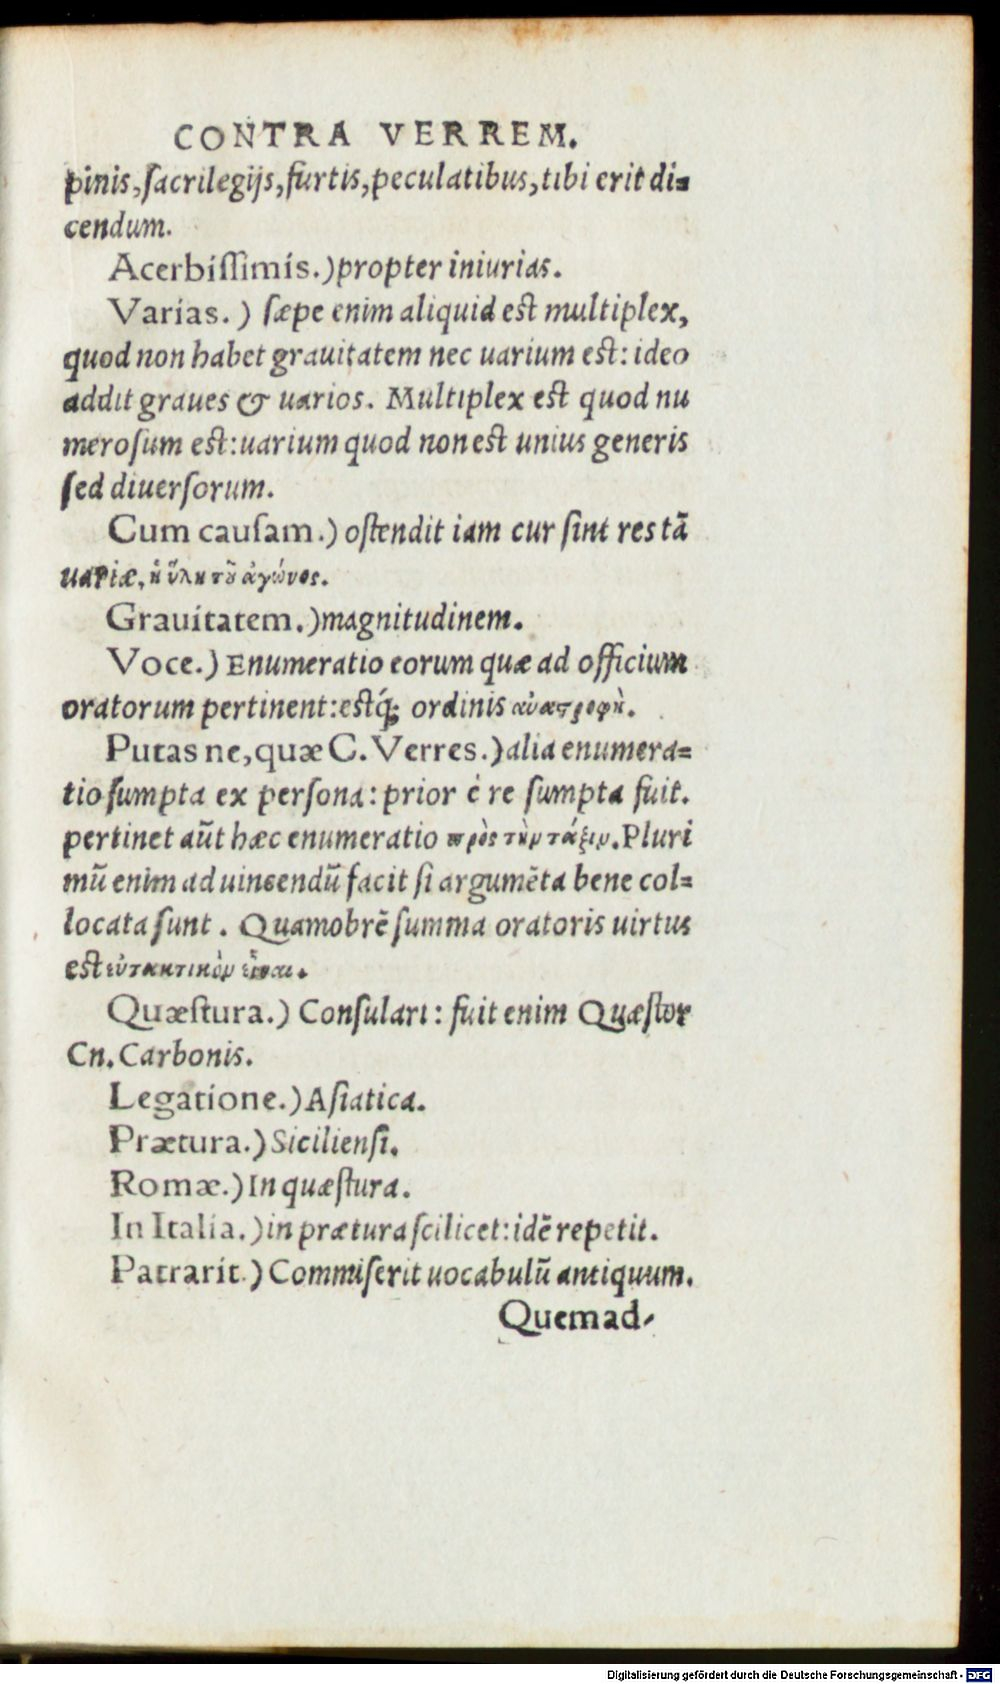 CONTRA VERREM.
pinis, sacrilegijs, furtis, peculatibus, tibi erit di=
cendum.
Acerbissimis.) propter iniurias.
Varias.) sæpe enim aliquid est multiplex,
quod non habet grauitatem nec uarium est: ideo
addit graues & uarios. Multiplex est quod nu
merosum est: uarium quod non est unius generis
sed diuersorum.
Cum causam.) ostendit iam cur sint res tã
uariæ, ἡ ὕλη τοῦ ἀγώνος.
Grauitatem.) magnitudinem.
Voce.) Enumeratio eorum quæ ad officium
oratorum pertinent: estq́; ordinis ἀναστροφὴ.
Putas ne, quæ C. Verres.) alia enumera=
tio sumpta ex persona: prior è re sumpta fuit.
pertinet aũt hæc enumeratio πρὸς τὴν τάξιν. Pluri
mũ enim ad uincendũ facit si argumẽta bene col=
locata sunt. Quamobrẽ summa oratoris uirtus
est εὐτακτικὸν εἶναι.
Quæstura.) Consulari: fuit enim Quæstor
Cn. Carbonis.
Legatione.) Asiatica.
Prætura.) Siciliensi.
Romæ.) In quæstura.
In Italia.) in prætura scilicet: idẽ repetit.
Patrarit.) Commiserit uocabulũ antiquum.
Quemad-
Digitalisierung gefördert durch die Deutsche Forschungsgemeinschaft - DFG